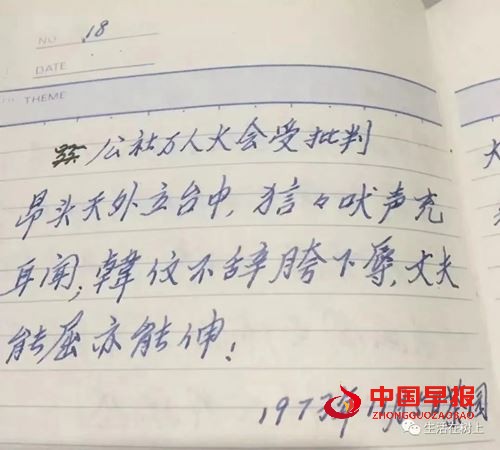 NO. 18
DATE
THEME
公社万人大会受批判
昂头天外立台中，狺々吠声充
耳闻；韓侯不辞胯下辱，丈夫
能屈亦能伸！
1973年
中国早报
ZHONGGUOZAOBAO
生活在树上